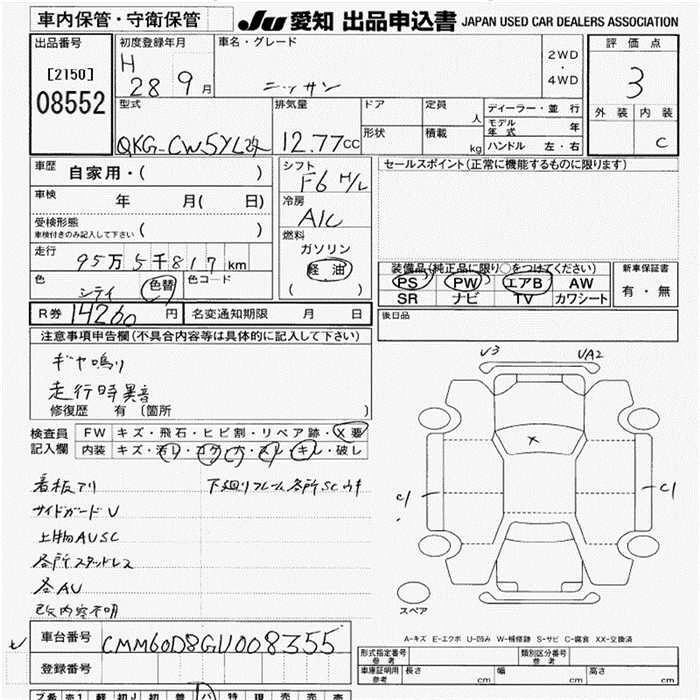 車内保管・守衛保管
JU 愛知 出品申込書 JAPAN USED CAR DEALERS ASSOCIATION
出品番号
[2150]
08552
初度登録年月
H 28 9 月
車名・グレード
ニッサン
2WD
・
4WD
評価点
3
外装 内装
C
型式
QKG-CW5YL改
排気量
12.77 CC
ドア
形状
定員 人
積載 kg
ディーラー・並行
モデル年式 年
ハンドル 左・右
車歴 自家用・( )
車検 年 月( 日)
受検形態
車検付きのみ記入して下さい ( )
走行 95万5千817 km
色 シライ 色替 色コード
シフト
F6 H/L
冷房
A/C
燃料
ガソリン
軽油
( )
セールスポイント(正常に機能するものに限ります)
装備品(純正品に限り○をつけてください)
PS PW エアB AW
SR ナビ TV カワシート
新車保証書
有・無
後日品
R券 14260 円 名変通知期限 月 日
注意事項申告欄(不具合内容等は具体的に記入して下さい)
ギヤ鳴り
走行時異音
修復歴 有 〔箇所 〕
検査員
記入欄
FW キズ・飛石・ヒビ割・リペア跡・X要
内装 キズ・汚レ・コゲ・穴・スレ・キレ・破レ
看板アリ 下廻りフレーム各所SCサキ
サイドガードU
上物AUSC
各所スタッドレス
各AU
改内容不明
V3 UA2
x
C1 C1
スペア
A-キズ E-エクボ U-凹み W-補修跡 S-サビ C-腐食 XX-交換済
レ
車台番号 CMM60D8GU008355
登録番号
形式指定番号 参考
類別区分番号 参考
車庫証明用 参考 長さ cm 幅 cm 高さ cm